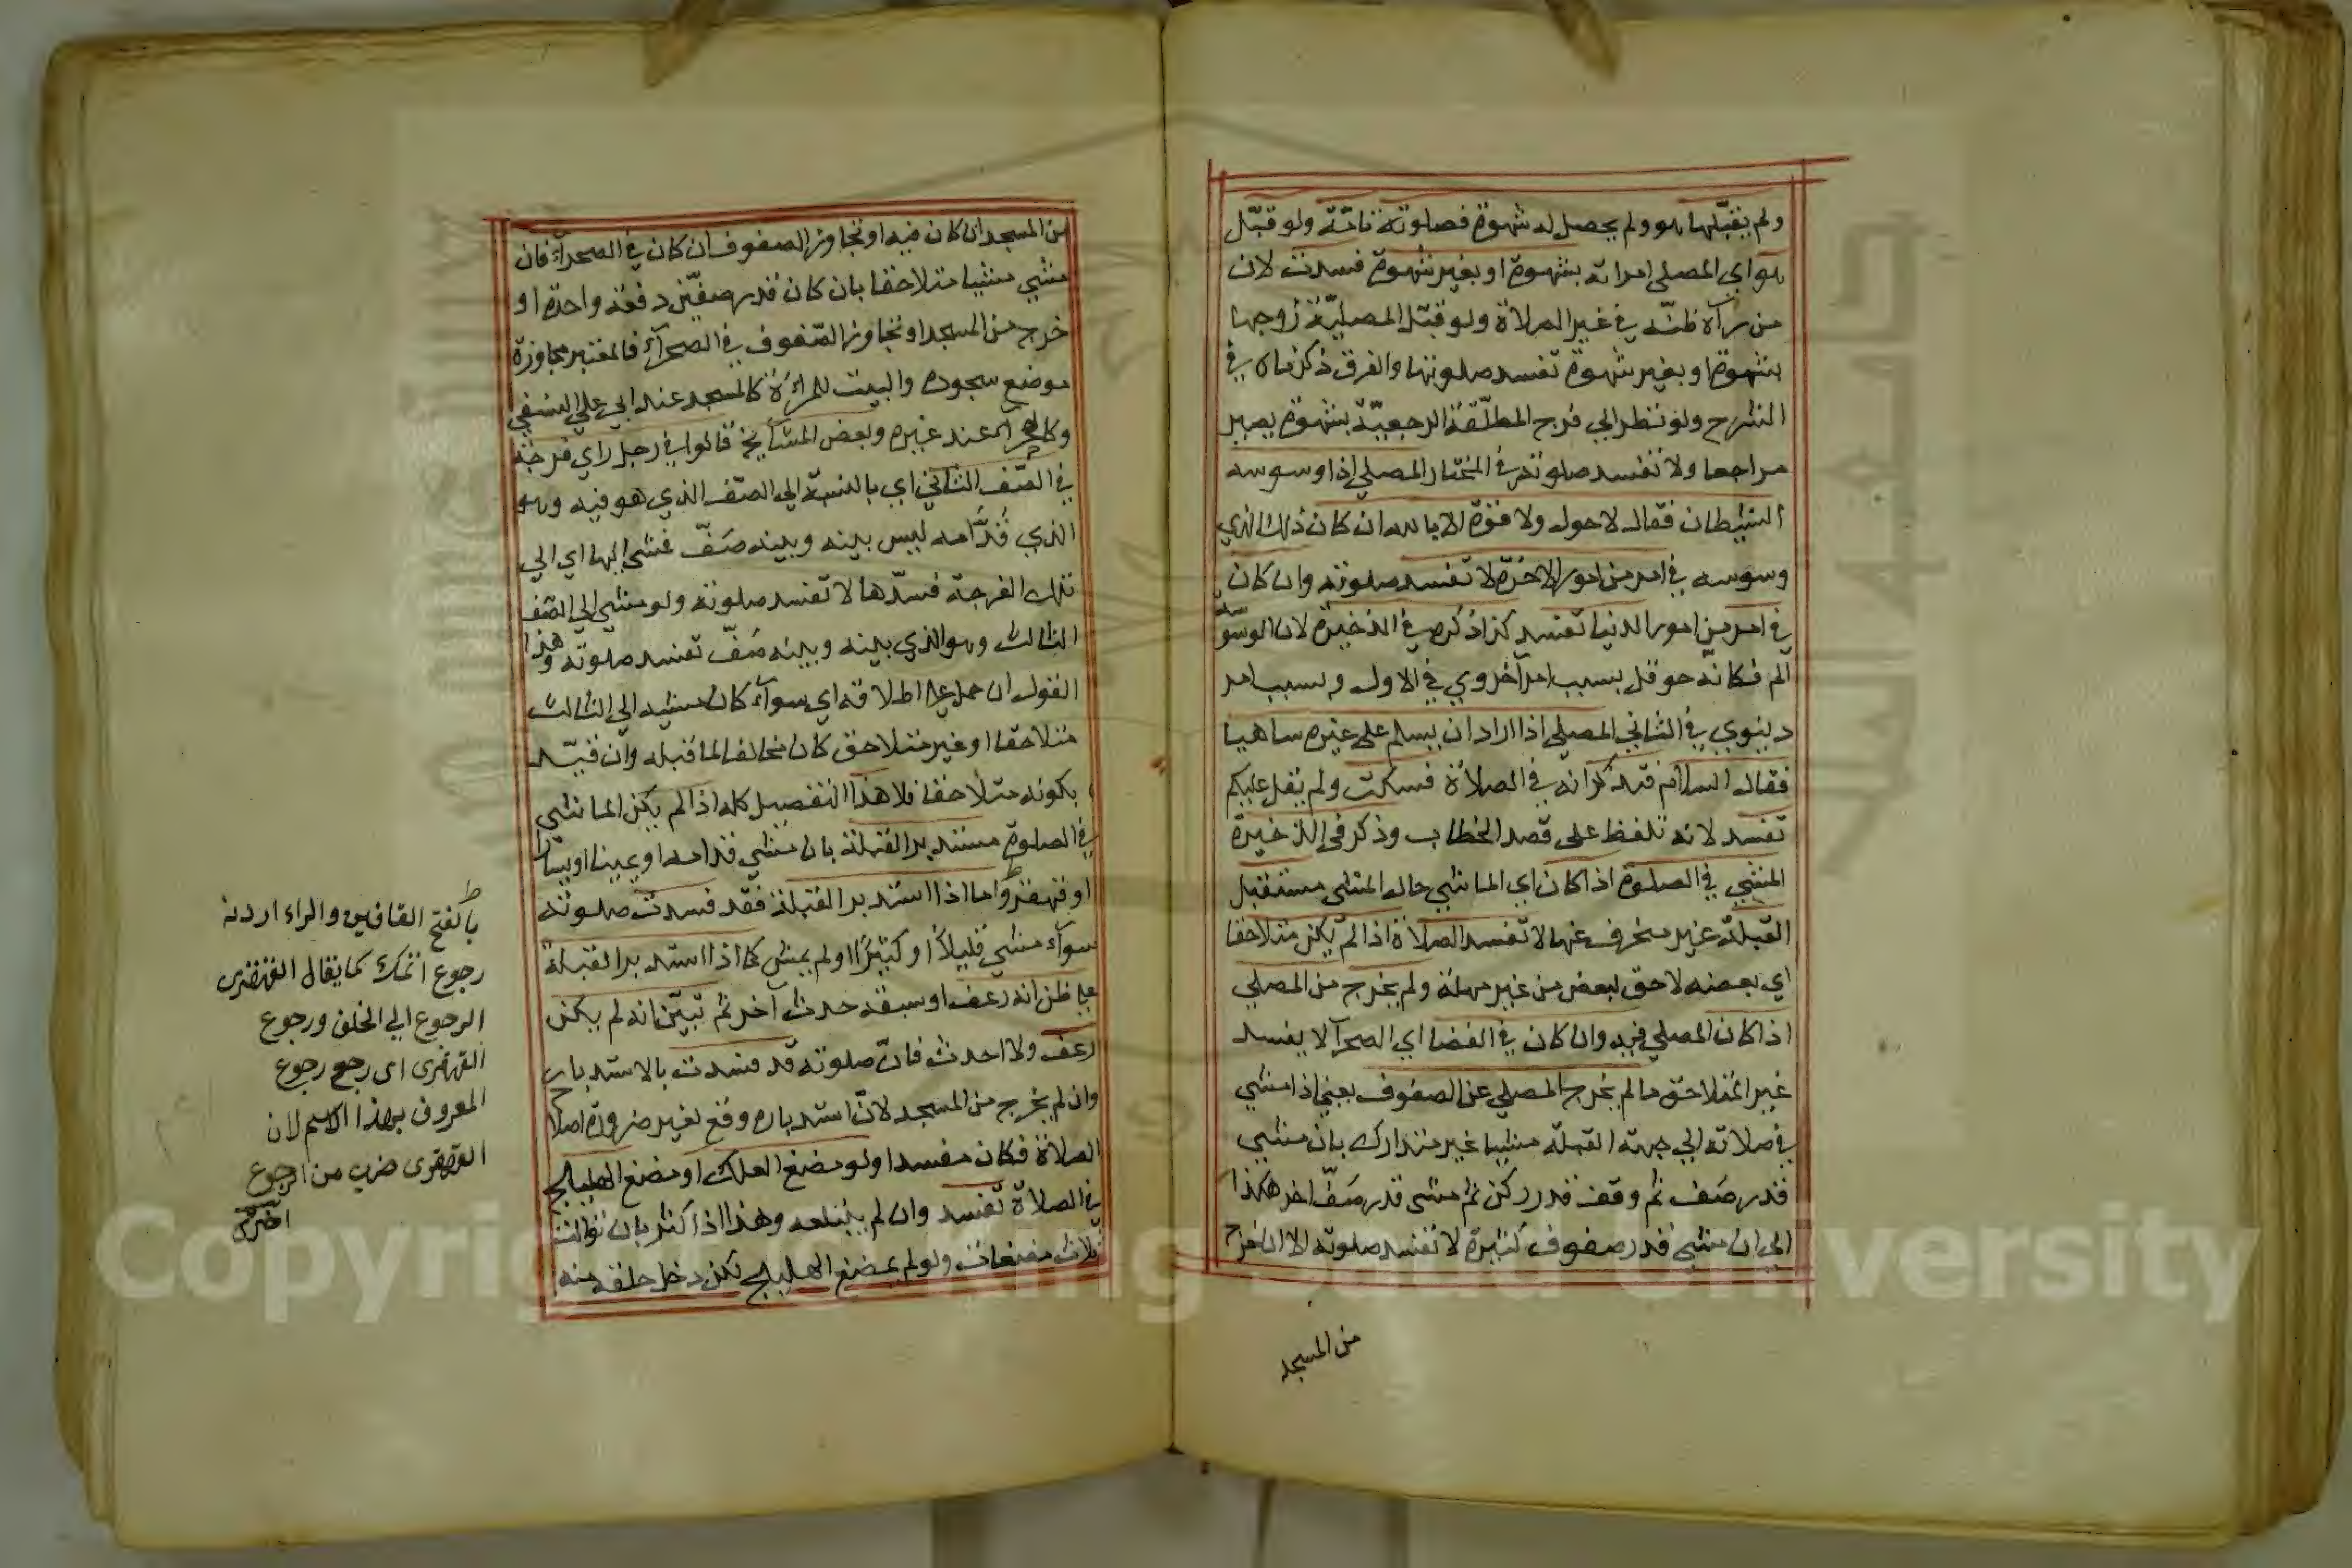 ولم يقبّلها هو ولم يحصل له شهوة فصلوته تامّة ولو قبّل
هو اي المصلي امراته بشهوة او بغير شهوة فسدت لان
من رآه ظنّه في غير الصلاة ولو قبّل المصليّة زوجها
بشهوة او بغير شهوة تفسد صلوتها والفرق ذكرناه في
الشرح ولو نظر الي فرج المطلّقة الرجعيّة بشهوة يصير
مراجعا ولا تفسد صلوته في المختار المصلي اذا وسوسه
الشيطان فقال لا حول ولا قوّة الا بالله ان كان ذلك الذي
وسوسه في امر من امور الاخرة لا تفسد صلوته وان كان
في امر من امور الدنيا تفسد كذا ذكره في الذخيرة لان الوسوسة
الم فكانه حوقل بسبب امر آخروي في الاول وبسبب امر
دينوي في الثاني المصلي اذا اراد ان يسلم على غيره ساهيا
فقال السلام فتذكر انه في الصلاة فسكت ولم يقل عليكم
تفسد لانه تلفظ على قصد الخطاب وذكر في الذخيرة
المشي في الصلوة اذا كان اي الماشي حال المشي مستقبل
القبلة غير منحرف عنها لا تفسد الصلاة اذا لم يكن متلاحقا
اي بعضه لاحق لبعض من غير مهلة ولم يخرج من المصلي
اذا كان المصلي فيه وان كان في الفضا اي الصحرا لا يفسد
غير المتلاحق ما لم يخرج المصلي عن الصفوف يعني اذا مشي
في صلاته الي جهة القبلة مشيا غير متدارك بان مشي
قدر صف ثم وقف قدر ركن ثم مشى قدر صفّ اخر هكذا
الي ان مشي قدر صفوف كثيرة لا تفسد صلوته الا ان خرج
من المسجد
من المسجد ان كان فيه او تجاوز الصفوف ان كان في الصحراء فان
مشي مشيا متلاحقا بان كان قدر صفّين دفعة واحدة او
خرج من المسجد او تجاوز الصّفوف في الصحرآء فالمعتبر مجاوزة
موضع سجوده والبيت للمراة كالمسجد عند ابي علي النسفي
وكالصحراء عند غيره وبعض المشايخ قالوا في رجل راي فرجة
في الصّف الثاني اي بالنسبة الي الصّف الذي هو فيه وهو
الذي قدّامه ليس بينه وبينه صَفّ فمشى اليها اي الي
تلك الفرجة فسدّها لا تفسد صلوته ولو مشي الي الصّف
الثالث وهو الذي بينه وبينه صَفّ تفسد صلوته وهذا
القول ان حمل على اطلاقه اي سوآء كان مشيه الي الثالث
متلاحقا او غير متلاحق كان مخالفا لما قبله وان قيّد
بكونه متلاحقا فلا هذا التفصيل كله اذا لم يكن الماشي
في الصلوة مستدبر القبلة بان مشي قدامه او يمينا او يسارا
او قهقرّوا اما اذا استدبر القبلة فقد فسدت صلوته
سوآء مشي قليلًا او كثيرًا او لم يمش كما اذا استدبر القبلة
علي ظن انه رعف او سبقه حدث آخر ثم تبيّن انه لم يكن
رعف ولا احدث فانّ صلوته قد فسدت بالاستدبار
وان لم يخرج من المسجد لانّ استدباره وقع لغير ضرورة اصلاح
الصلاة فكان مفسدا ولو مضغ العلك او مضغ الهليلج
في الصلاة تفسد وان لم يبتلعه وهذا اذا كثر بان توالت
ثلاث مضغات ولو لم يمضغ الهليلج لكن دخل حلقه منه
بالفتح القافين والراء اردنه
رجوع اتمك كما يقال القهقرى
الرجوع الي الخلف ورجوع
القهقرى اى رجع رجوع
المعروف بهذا الاسم لان
القهقرى ضرب من الرجوع
اخترى